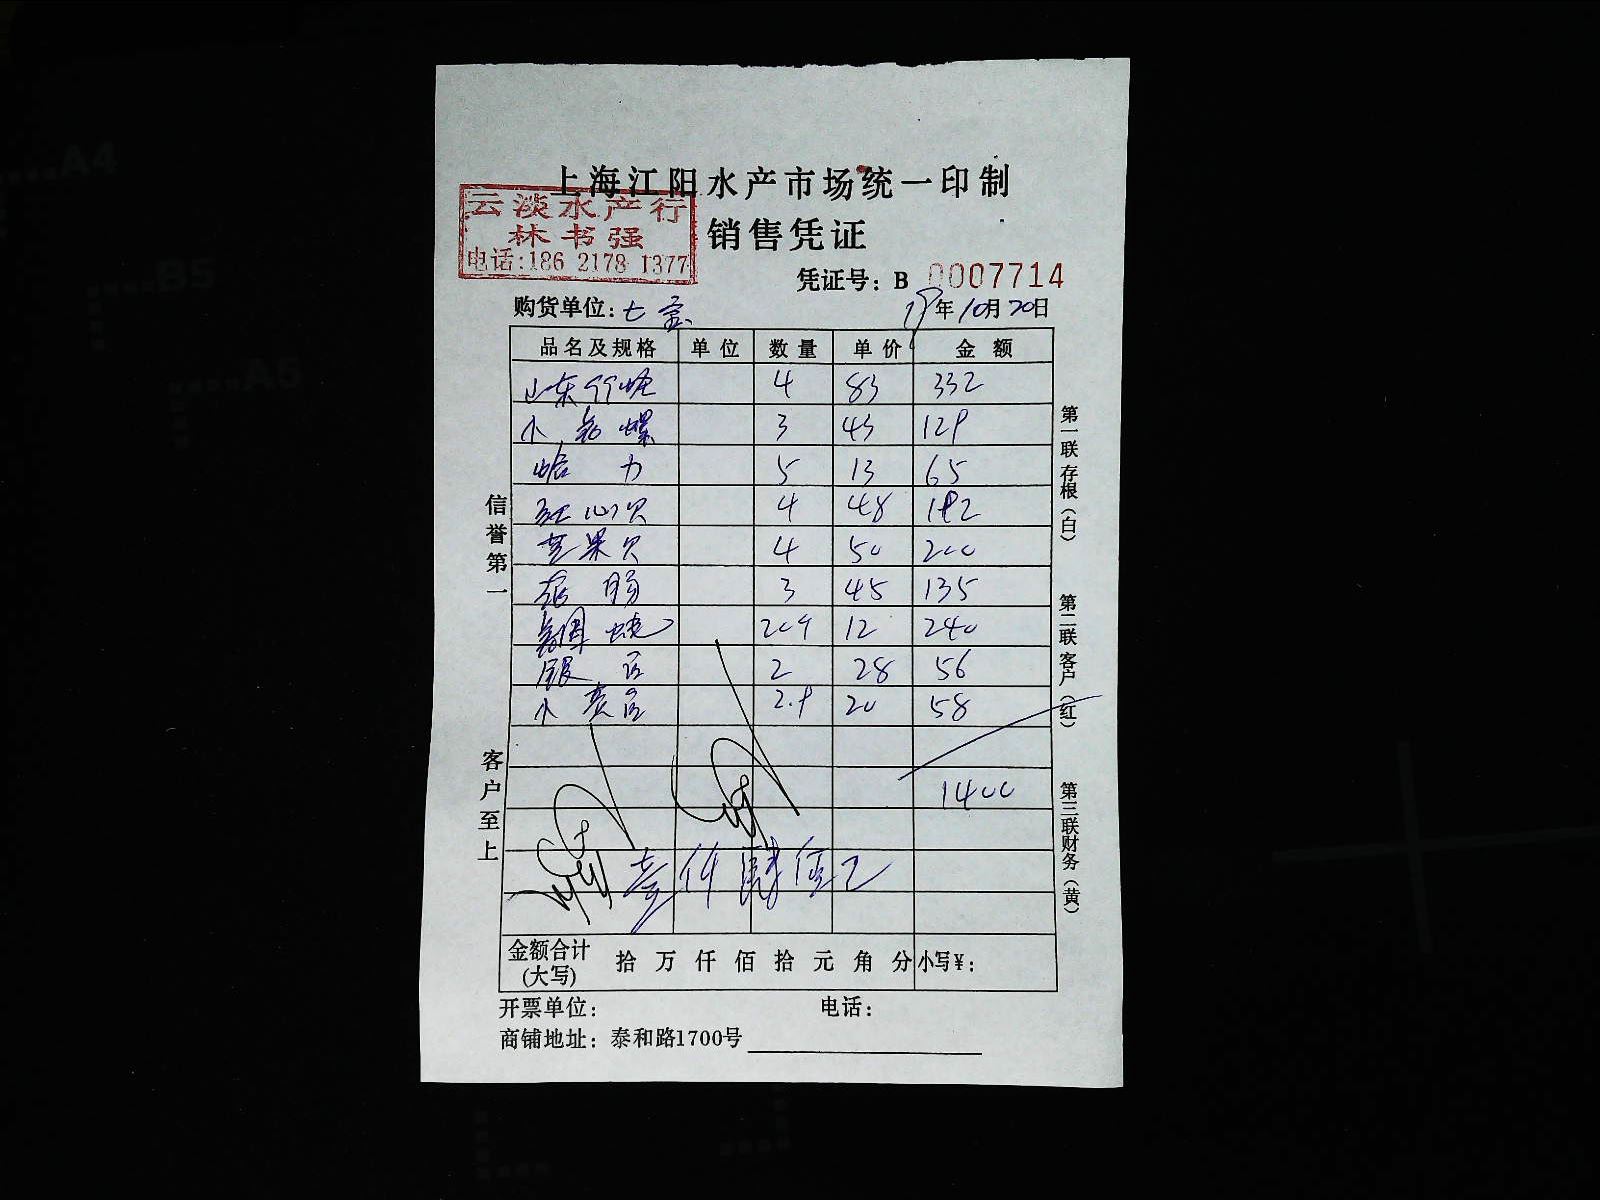 上海江阳水产市场统一印制
云淡水产行
林书强
电话:186 2178 1377
销售凭证
凭证号：B 0007714
购货单位：七宝 19年10月20日
品名及规格 单位 数量 单价 金额
山东 4 83 332
小 螺 3 43 129
哈力 5 13 65
红心贝 4 48 192
苹果贝 4 50 200
肠 3 45 135
12 240
银 2 28 56
小黄 2.9 20 58
1400
信誉第一
客户至上
第一联 存根（白）
第二联 客户（红）
第三联 财务（黄）
金额合计(大写) 拾 万 仟 佰 拾 元 角 分 小写¥：
开票单位： 电话：
商铺地址：泰和路1700号